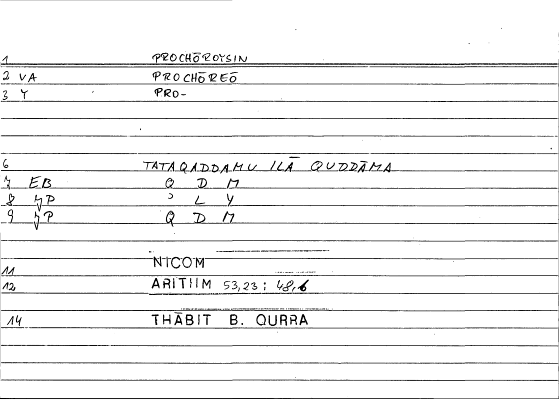 1 PROCHŌROYSIN
2 VA PROCHŌREŌ
3 Y PRO-
6 TATAQADDAMU ILĀ QUDDĀMA
7 EB Q D M
8 ȷP ʾ L Y
9 ȷP Q D M
11 NICOM
12 ARITIIM 53,23 : 48,6
14 THĀBIT B. QURRA